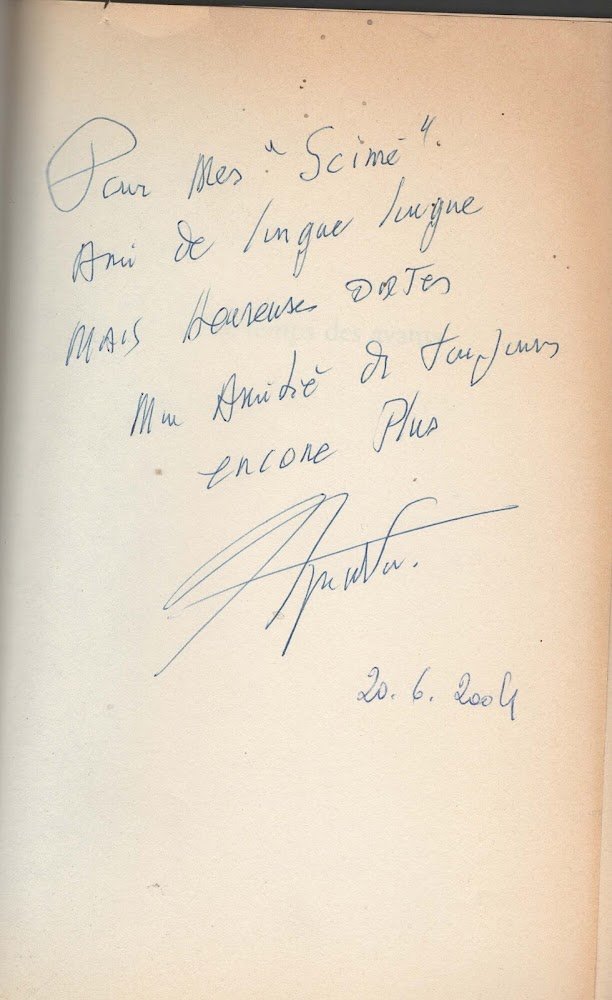 Pour Mes "Scimé".
Ami de longue longue
MAIS Heureuses DATES
Mon Amitié de toujours
encore Plus
20. 6. 2004